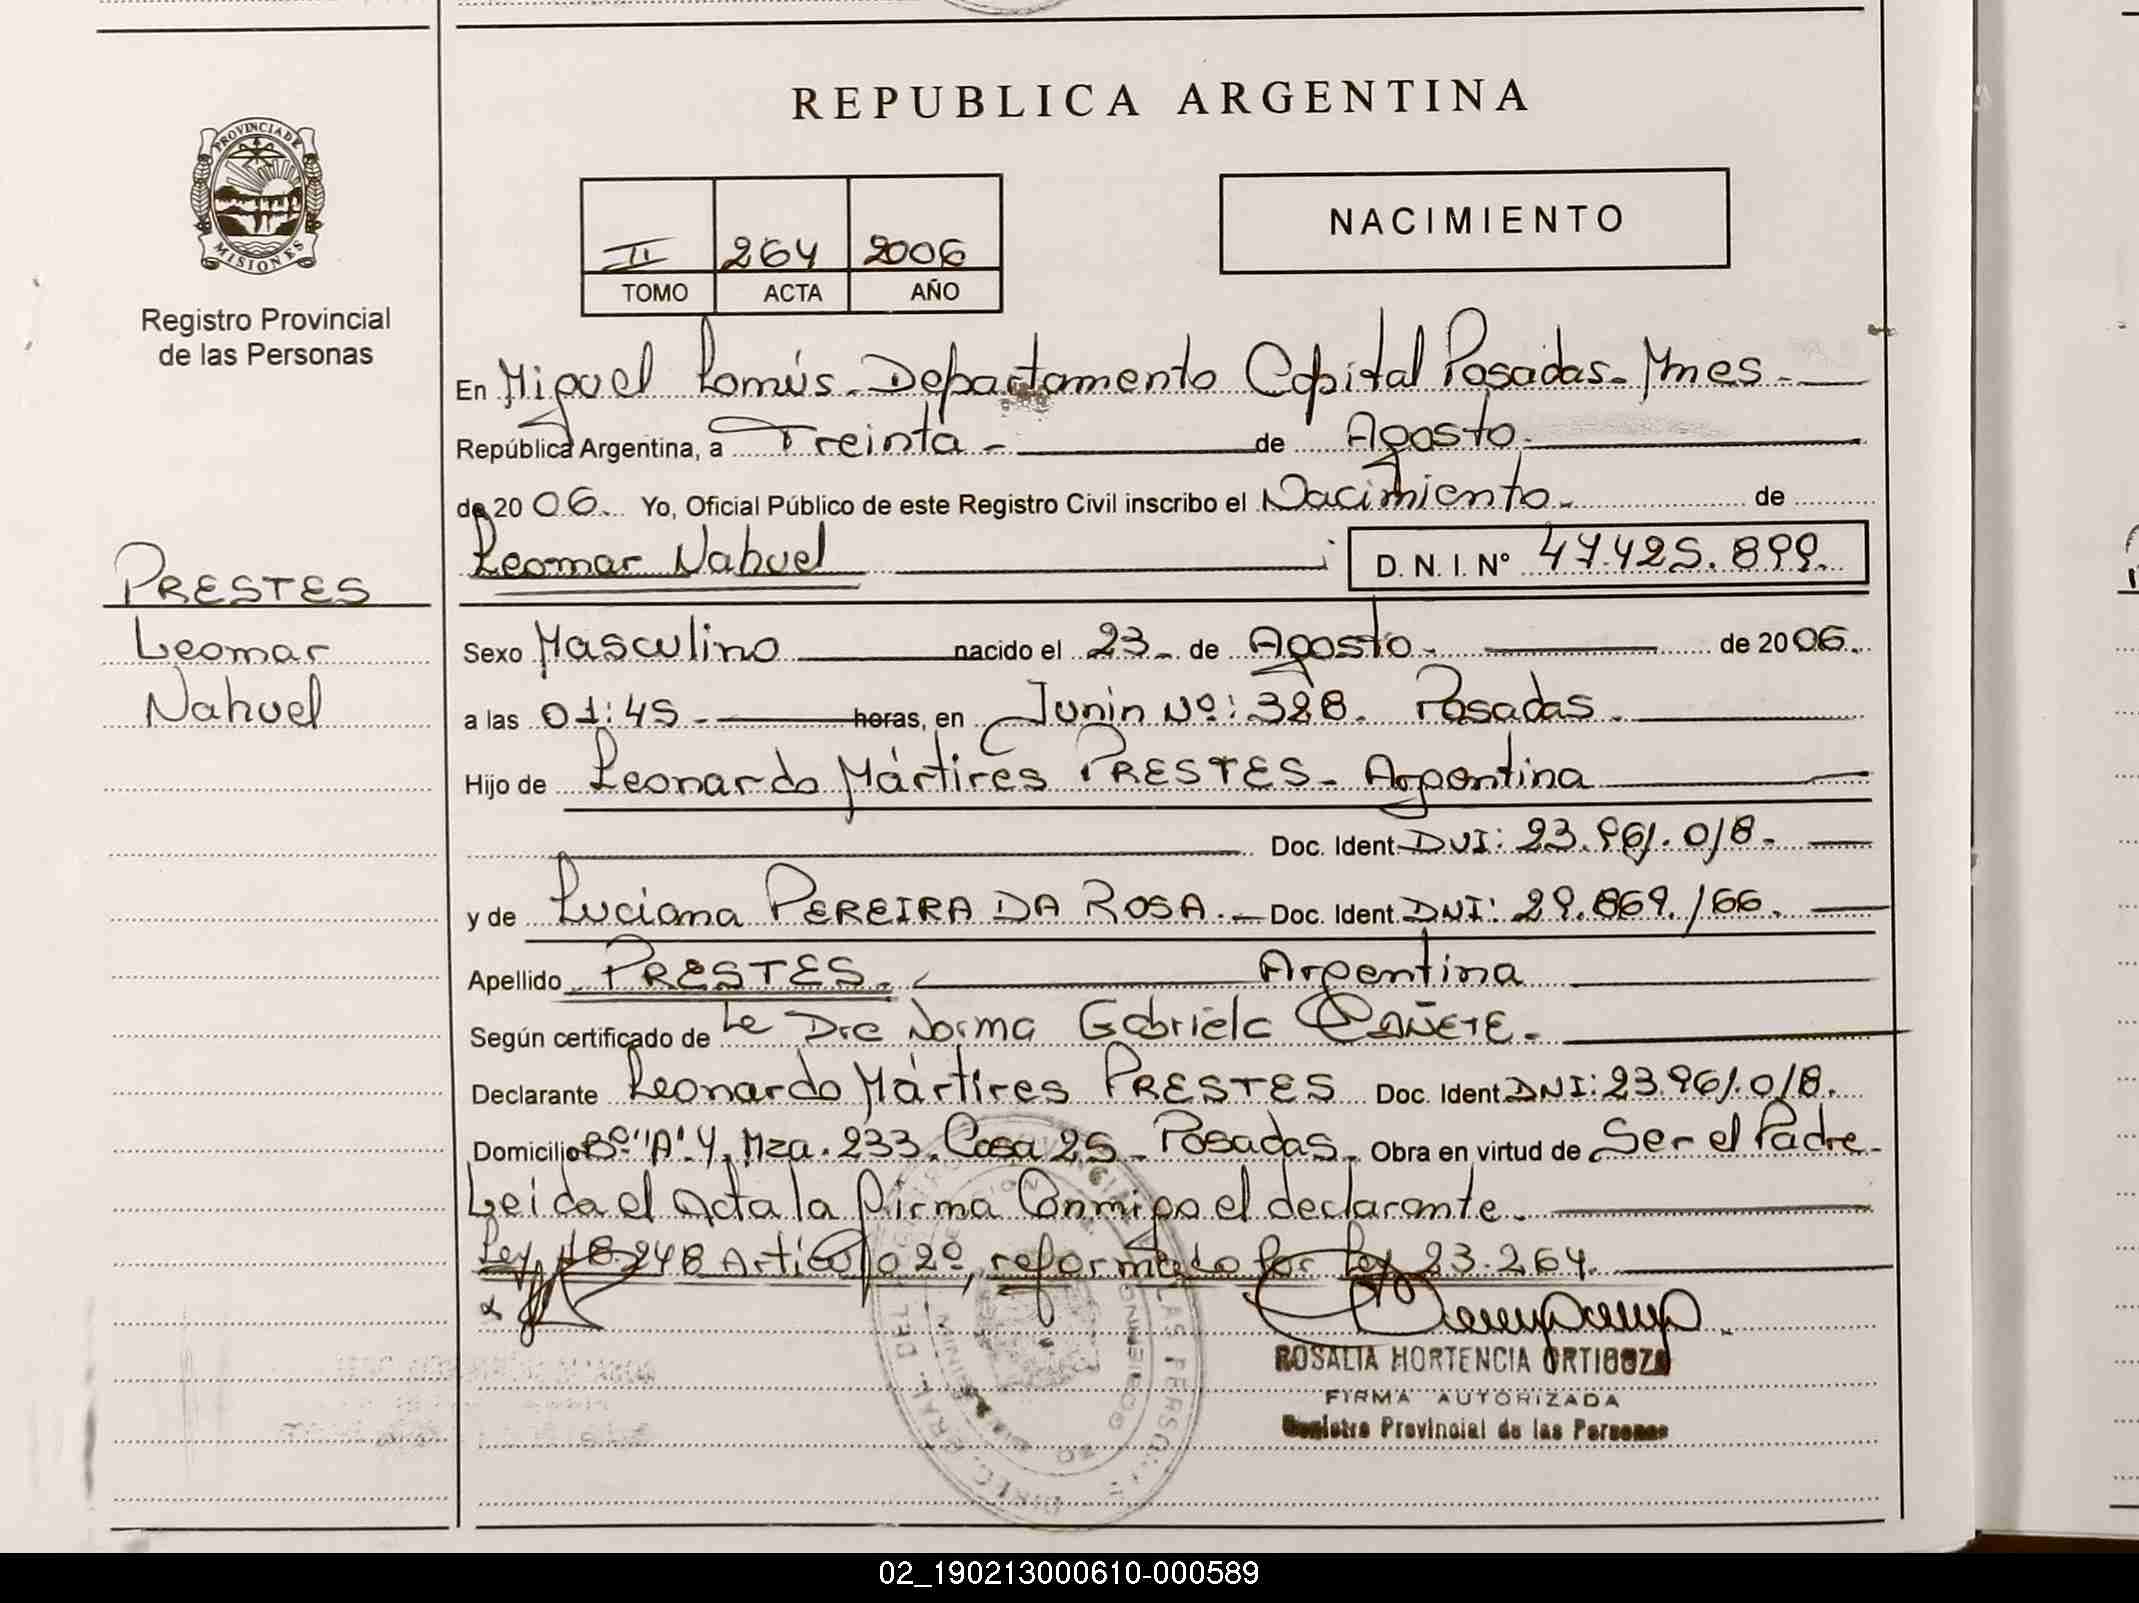 REPUBLICA ARGENTINA
PROVINCIA DE
MISIONES
Registro Provincial
de las Personas
II 264 2006
TOMO ACTA AÑO
NACIMIENTO
En Miguel Lanús - Departamento Capital Posadas - Mnes -
República Argentina, a Treinta - de Agosto.
de 20 06. Yo, Oficial Público de este Registro Civil inscribo el Nacimiento - de
Leomar Nahuel D. N. I. Nº 47.425.899.
PRESTES
Leomar
Nahuel
Sexo Masculino nacido el 23 - de Agosto - de 20 06.
a las 01:45 - horas, en Junín Nº: 328. Posadas.
Hijo de Leonardo Mártires PRESTES - Argentina
Doc. Ident. DNI: 23.961.018 -
y de Luciana PEREIRA DA ROSA. - Doc. Ident. DNI: 29.869.166.
Apellido PRESTES. Argentina
Según certificado de La Dra Norma Gabriela CAÑETE -
Declarante Leonardo Mártires PRESTES Doc. Ident. DNI: 23.961.018.
Domicilio Bº "A" 4. Mza. 233. Casa 25 - Posadas - Obra en virtud de Ser el Padre -
Leida el Acta la firma Conmigo el declarante.
Ley 18248 Artículo 2º, reformado por Ley 23.264.
ROSALIA HORTENCIA ORTIGOZA
FIRMA AUTORIZADA
Registro Provincial de las Personas
02_190213000610-000589